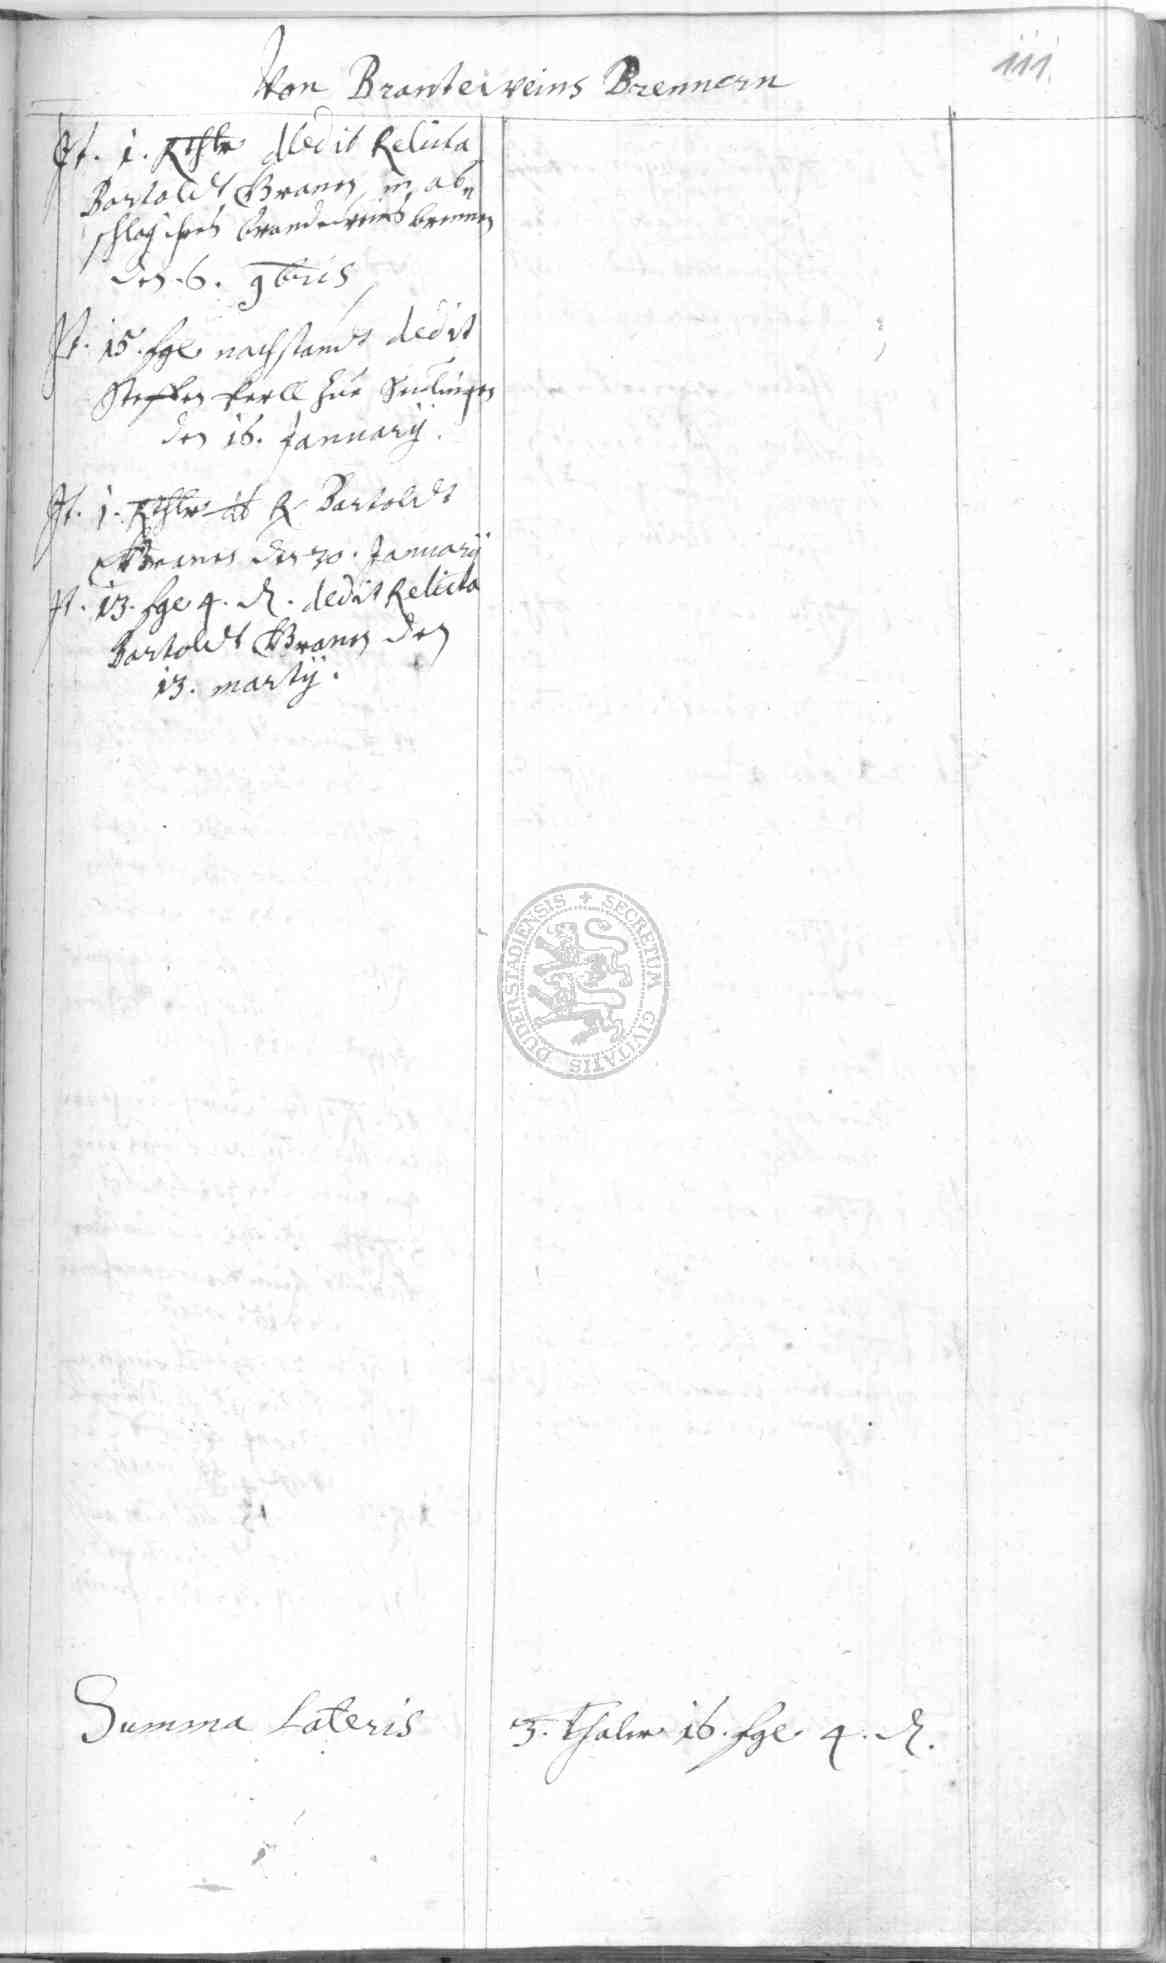 111.
Von Branteweins Brennern
It. 1. Rthlr dedit Relicta
Bartoldt Branes, in ab„
schlag ihres brandeweins brennen
den 6. 9bris
It. 15. sgl. nachstandt dedit
Steffen Kerll zue
den 16. January.
It. 1. Rthlr dt R Bartoldt
Branes den 30. January
It. 13. sgl 4. d. dedit Relicta
Bartoldt Branes den
13. marty.
SECRETUM CIVITATIS DUDERSTADIENSIS
Summa Lateris 3. thaler 16. sgl. 4. d.